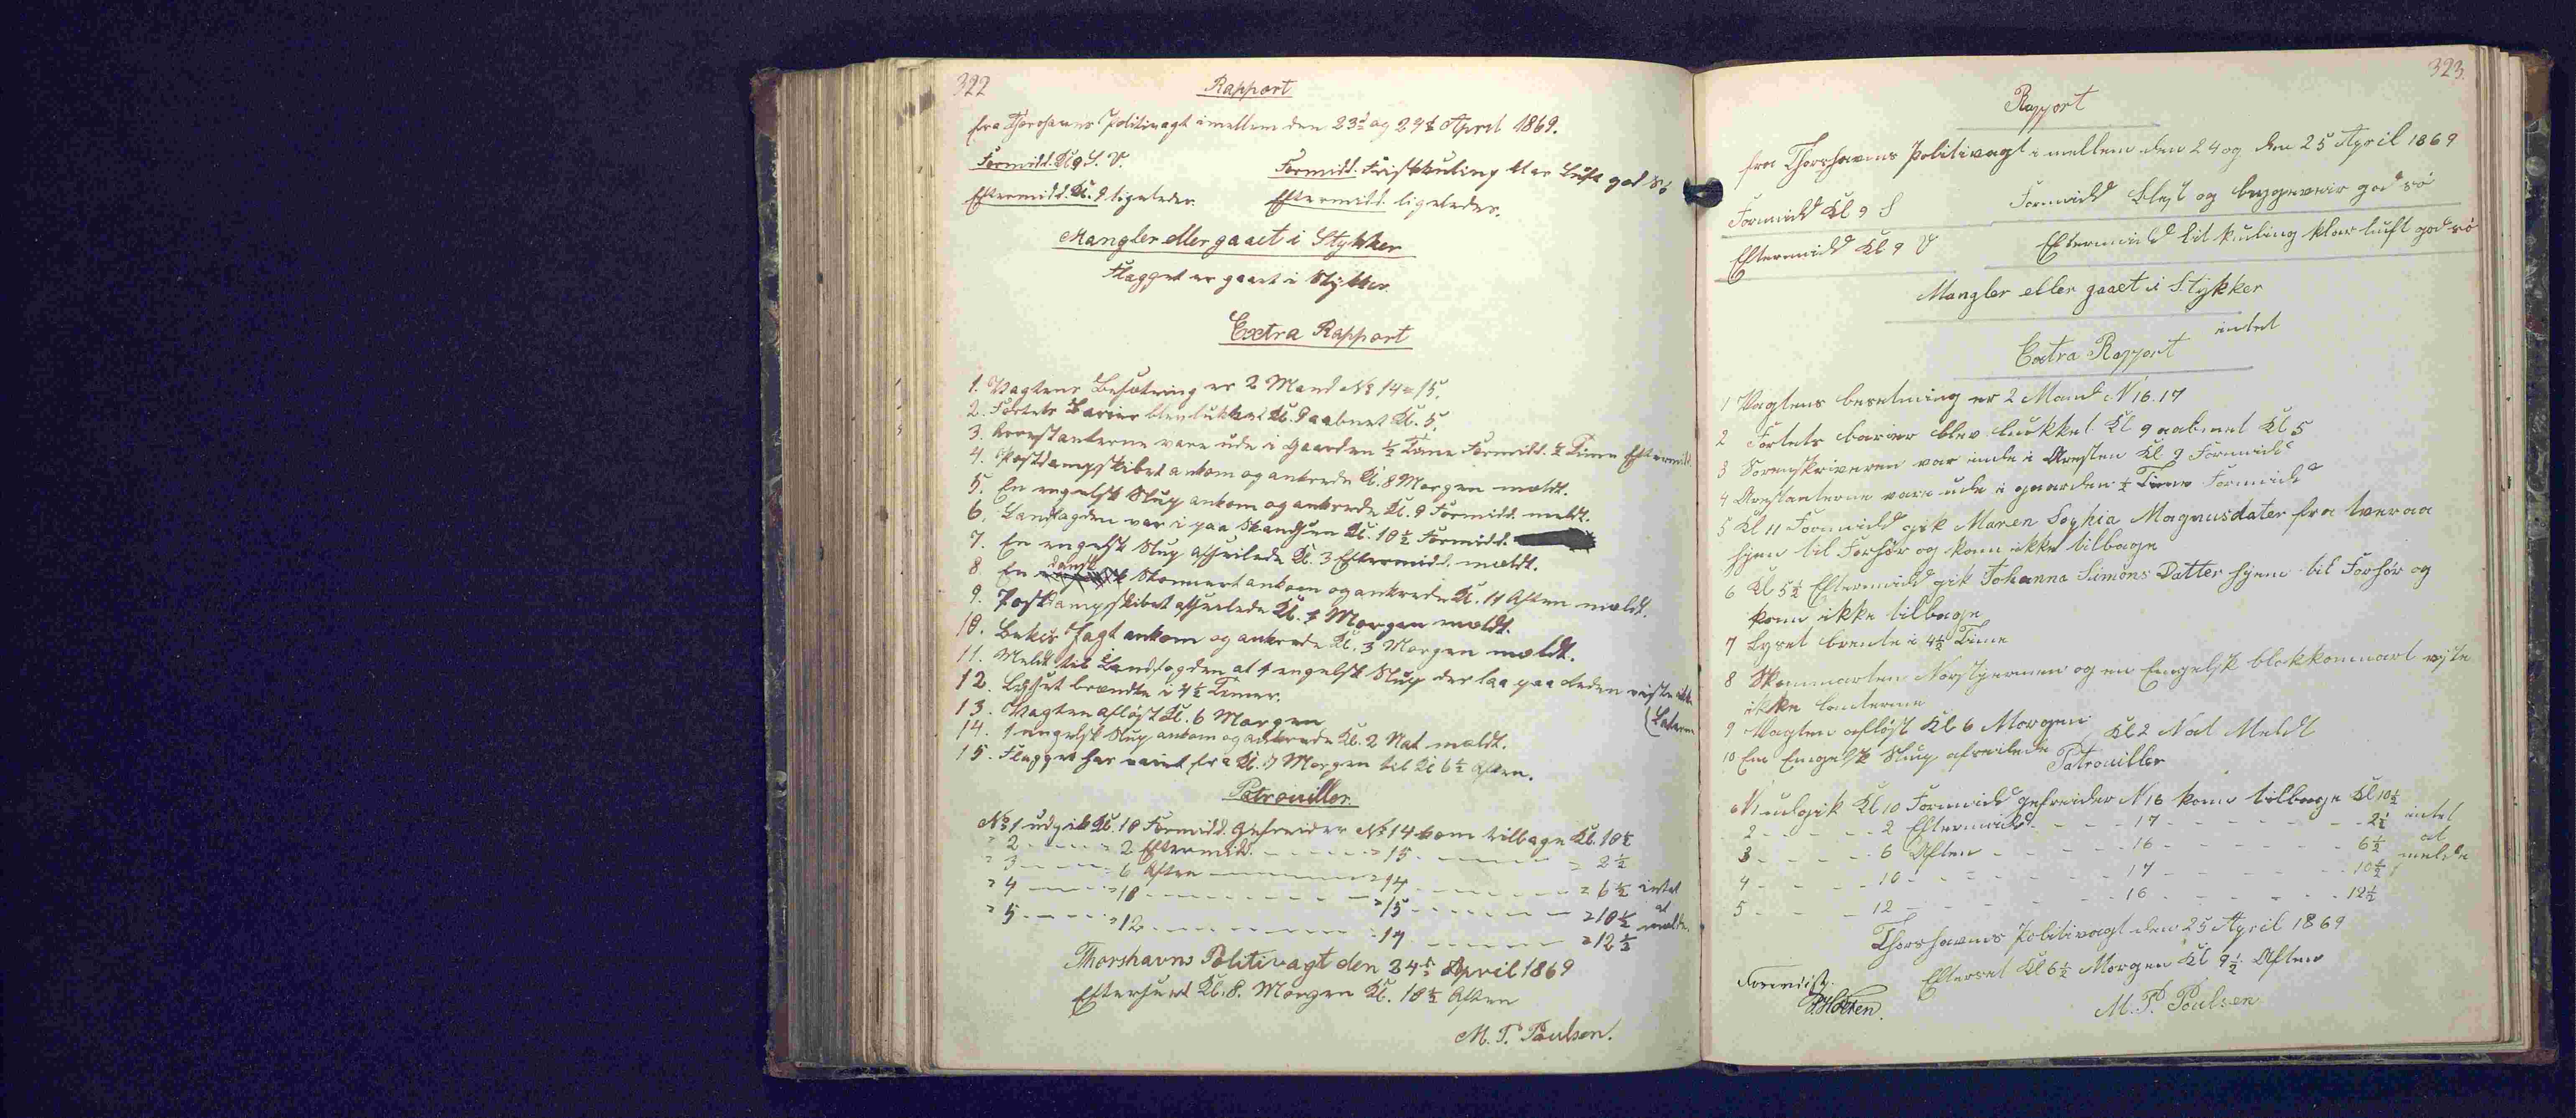 322
Rapport
fra Thorshavns Politivagt imellem den 23d og 24d April 1869.
Formidd. Kl. 9 S. V. Formidd. Friskkuling klar Luft god Sö
Eftermidd. Kl. 9 ligeledes. Eftermidd. ligeledes.
Mangler eller gaaet i Stykker
Flagget er gaaet i Stykker
Extra Rapport
1. Vagtens Besætning er 2 Mand No 14 = 15.
2. Fortets Barier blev lukket Kl. 9 aabnet Kl. 5.
3. Arrestanterne vare ude i Gaarden ½ Time Formidd. ½ Time Eftermidd.
4. Postdampskibet ankom og ankrede Kl. 8 Morgen meldt.
5. En engelsk Slup ankom og ankrede Kl. 9 Formidd. meldt.
6. Landfogden var i paa Skandsen Kl. 10½ Formidd.
7. En engelsk Slup afseilede Kl. 3 Eftermidd. meldt.
8. En dansk Skonnert ankom og ankrede Kl. 11 Aften meldt.
9. Postdampskibet afseilede Kl. 4 Morgen meldt.
10. Jagt ankom og ankrede Kl. 3 Morgen meldt.
11. Meldt til Landfogden at 1 engelsk Slup der laa paa Reden viste ikke
(Lanterne
12. Lyset brændte i 4½ Timer.
13. Vagten aflöst Kl. 6 Morgen
14. 1 engelsk Slup ankom og ankrede Kl. 2 Nat meldt.
15. Flagget har vaiet fra Kl. 7 Morgen til Kl 6½ Aften.
Patrouiller.
No 1 udgik Kl. 10 Formidd. Gefreider No 14 kom tilbage Kl. 10½
" 2 - - - - " 2 Eftermidd. - - - - " 15 - - - - " 2½
" 3 - - - - " 6 Aften - - - - " 14 - - - - " 6½ intet
" 4 - - - - " 10 - - - - " 15 - - - - " 10½ at
" 5 - - - - " 12 - - - - " 14 - - - - " 12½ melde.
Thorshavns Politivagt den 24d April 1869
Efterseet Kl. 8. Morgen Kl. 10½ Aften
M. P. Poulsen.
323.
Rapport
fra Thorshavns Politivagt imellem den 24 og den 25 April 1869
Formidd Kl 9 S Formidd Blest og byggeveir god sö
Eftermidd Kl 9 V Eftermidd lit kuling klar luft god sö
Mangler eller gaaet i Stykker
intet
Extra Rapport
1 Vagtens besetning er 2 Mand N 16. 17
2 Fortets barier blev lukket Kl 9 aabnet Kl 5
3 Sorenskriveren var inde i Aresten Kl 9 Formidd
4 Arestanterne vare ude i gaarden ½ Time Formidd
5 Kl 11 Formidd gik Maren Sophia Magnusdater fra tveraa
hjem til Forhör og kom ikke tilbage
6 Kl 5½ Eftermidd gik Johanna Simons Datter hjem til Forhör og
kom ikke tilbage
7 Lyset brente i 4½ Time
8 Skonnarten Norstjernen og en Engelsk viste
ikke lanterne
9 Vagten aflöst Kl 6 Morgen
10 En Engelsk Slup afseilede Kl 2 Nat Meldt
Patrouiller
N 1 udgik Kl 10 Formidd gefreider N 16 kom tilbage Kl 10½
2 - - - - 2 Eftermidd - - - - 17 - - - - 2½ intet
3 - - - - 6 Aften - - - - 16 - - - - 6½ at
4 - - - - 10 - - - - 17 - - - - 10½ melde
5 - - - - 12 - - - - 16 - - - - 12½
Thorshavns Politivagt den 25 April 1869
Efterset Kl 6½ Morgen Kl 9½ Aften
M. P. Poulsen